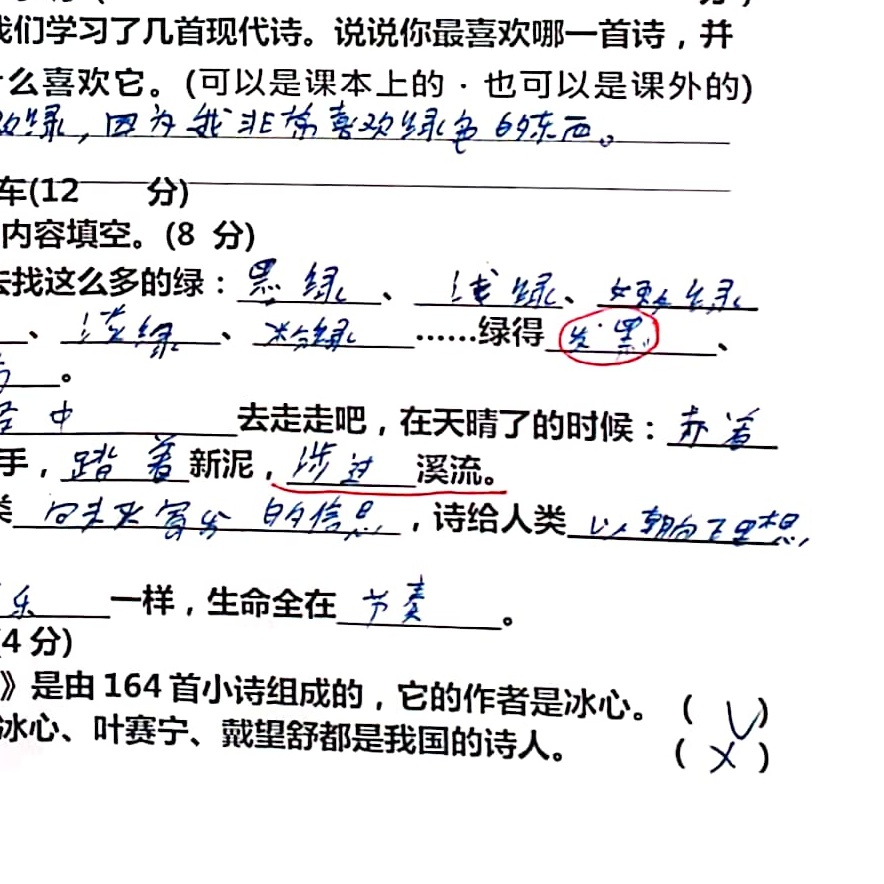 我们学习了几首现代诗。说说你最喜欢哪一首诗，并
什么喜欢它。(可以是课本上的·也可以是课外的)
欢绿，因为我非常喜欢绿色的东西。
车(12 分)
内容填空。(8 分)
去找这么多的绿：墨绿、浅绿、嫩绿
、淡绿、粉绿……绿得发黑、
。
中去走走吧，在天晴了的时候：赤着
手，踏着新泥，涉过溪流。
类的信息，诗给人类以朝向理想
乐一样，生命全在节奏。
(4分)
》是由164首小诗组成的，它的作者是冰心。(√)
冰心、叶赛宁、戴望舒都是我国的诗人。(×)